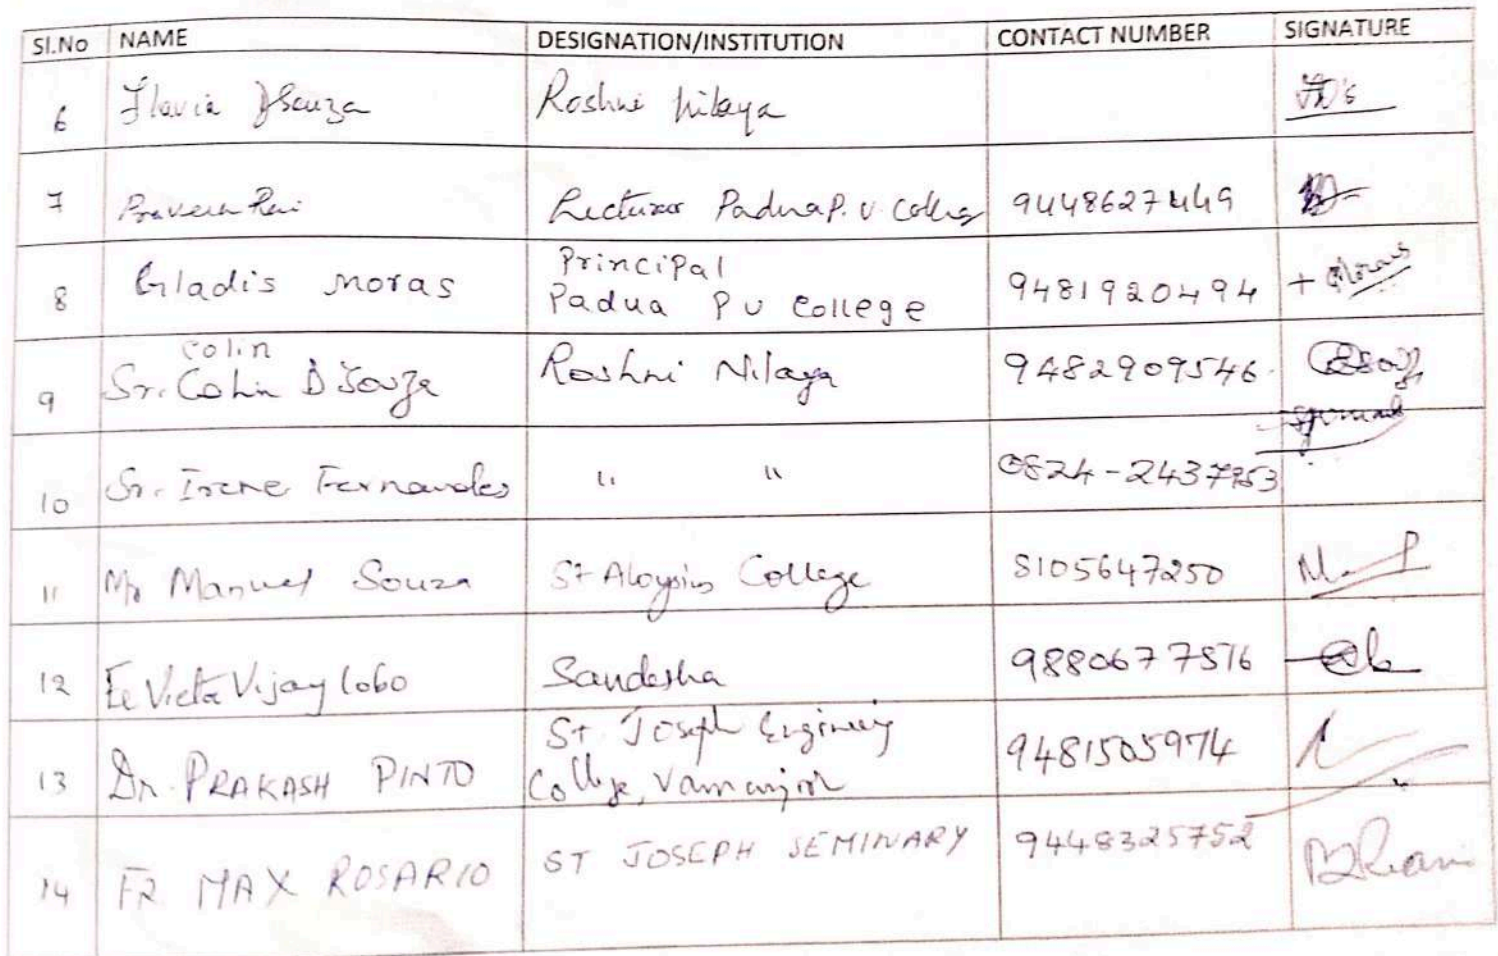 Sl.No NAME DESIGNATION/INSTITUTION CONTACT NUMBER SIGNATURE
6 Flavia Dsouza Roshni Nilaya
7 Praveen Rai Lecturer Padua P. U College 9448627449
8 Gladis Moras Principal
Padua PU College 9481920494 + Moras
colin
9 Sr. Colin D'Souza Roshni Nilaya 9482909546
10 Sr. Irene Fernandes " " 0824-2437253
11 Mr Manuel Souza St Aloysius College 8105647250
12 Fr Victor Vijay Lobo Sandesha 9880677576
13 Dr. PRAKASH PINTO St. Joseph Engineering
College, Vamanjoor 9481505974
14 FR MAX ROSARIO ST JOSEPH SEMINARY 9448325752